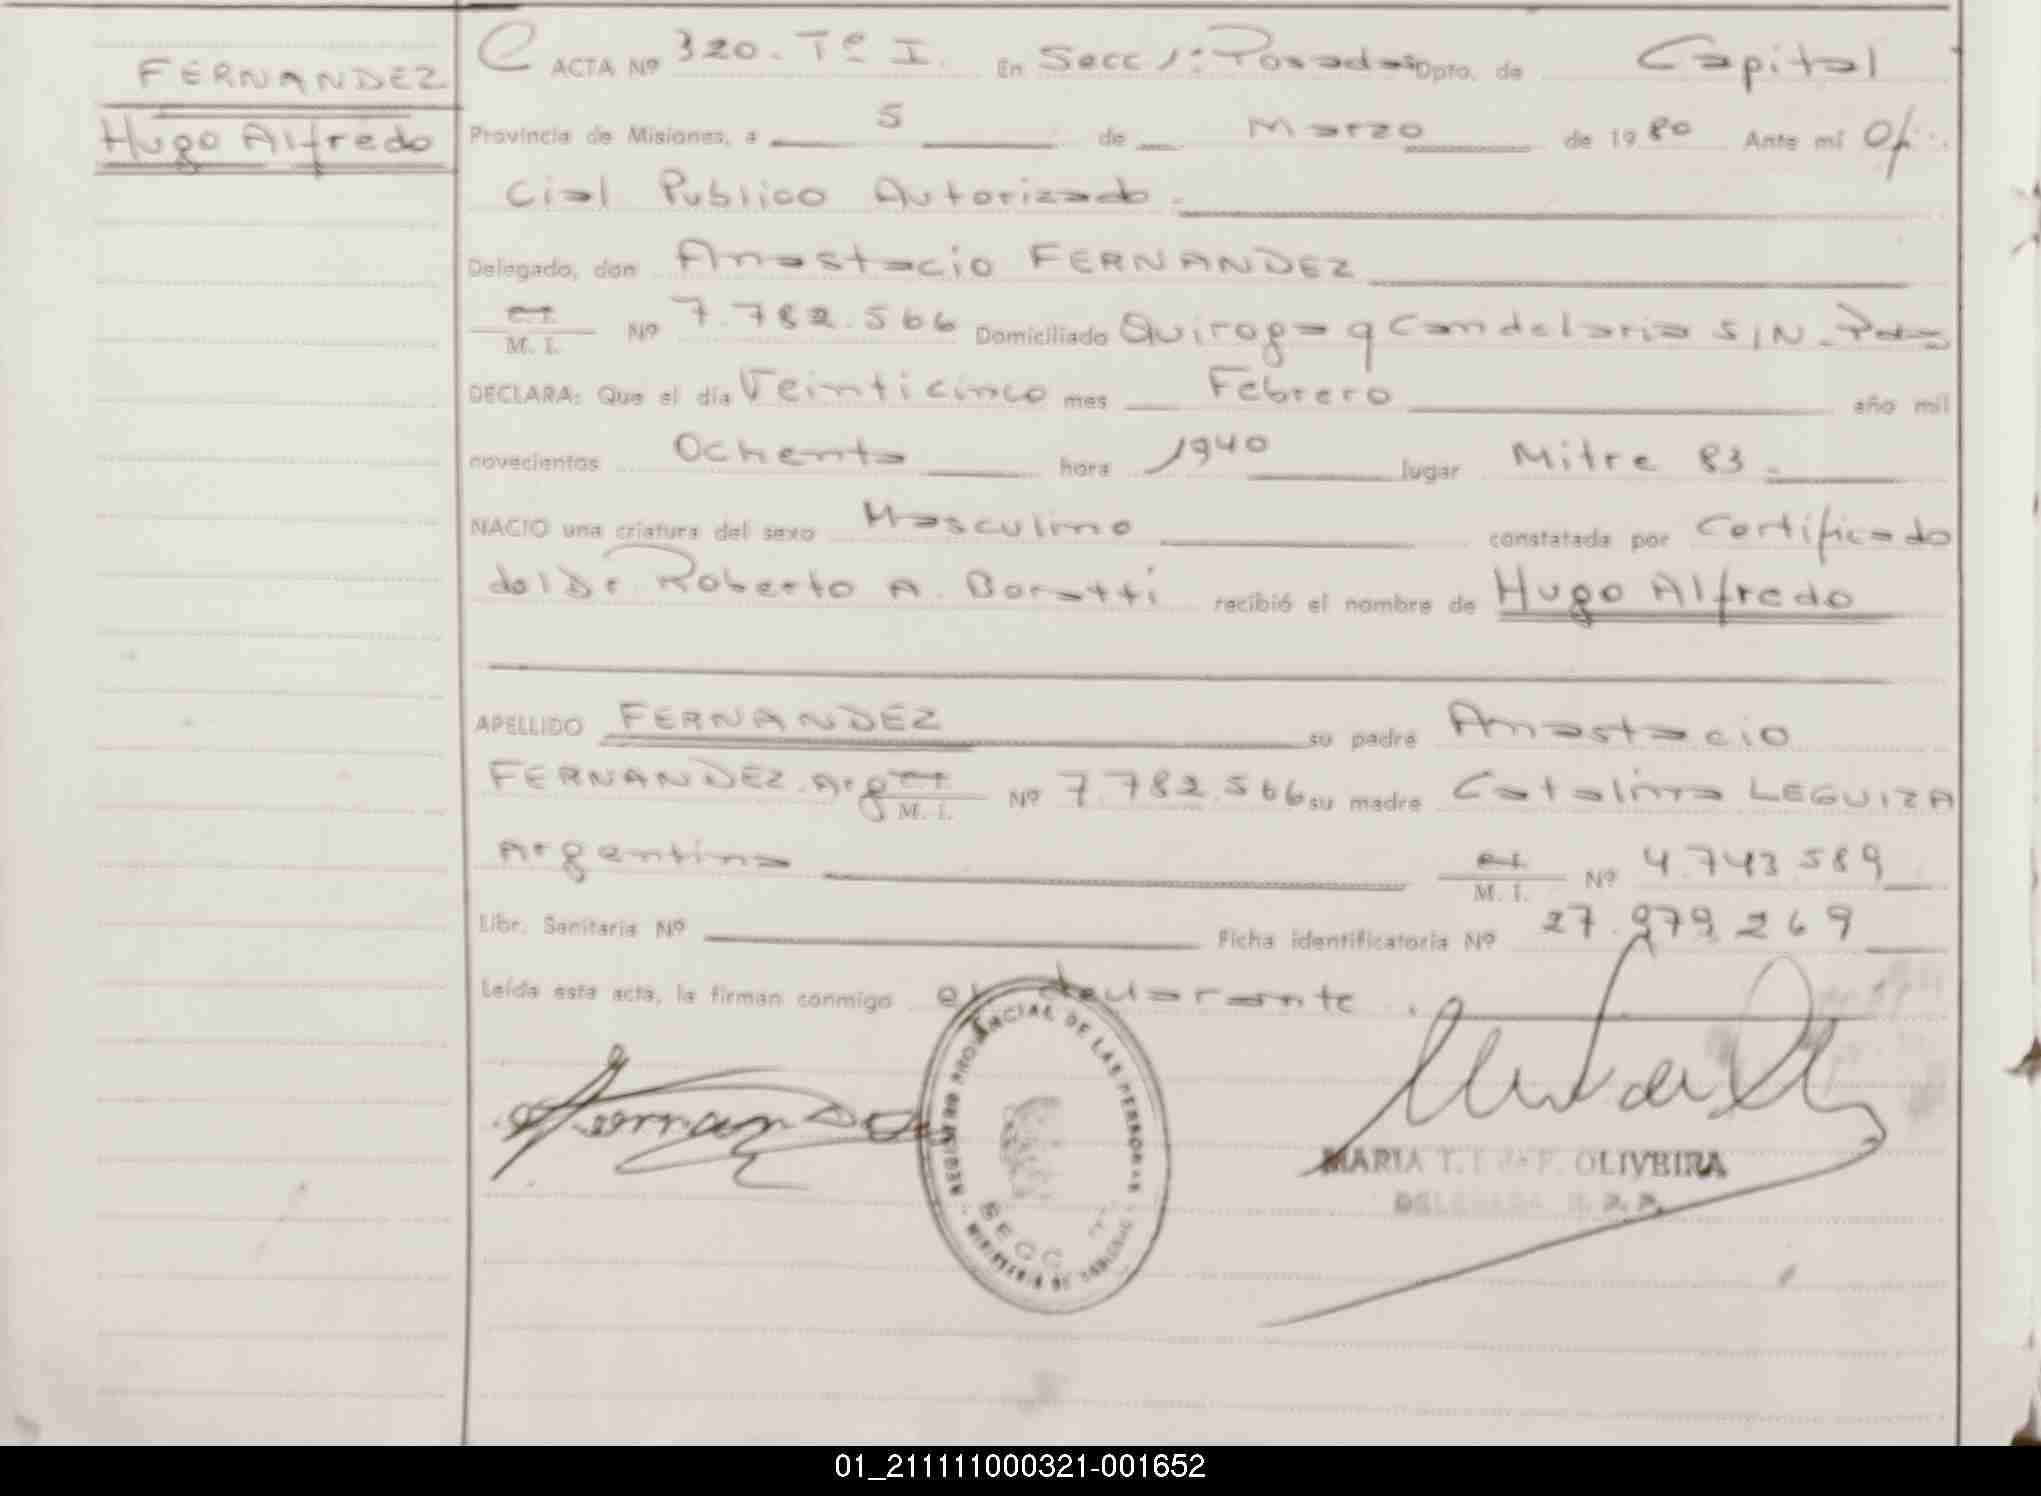 FERNANDEZ
Hugo Alfredo
ACTA Nº 320. Tº I. En Secc 1º Posadas Dpto. de Capital
Provincia de Misiones, a 5 de Marzo de 1980 Ante mí Ofi
cial Publico Autorizado.
Delegado, don Anastacio FERNANDEZ
C.I. M. I. Nº 7.782.566 Domiciliado Quiroga y Candelaria S/N - Pdas
DECLARA: Que el día Veinticinco mes Febrero año mil
novecientos Ochenta hora 1940 lugar Mitre 83.
NACIO una criatura del sexo Masculino constatada por Certificado
del Dr Roberto A. Boratti recibió el nombre de Hugo Alfredo
APELLIDO FERNANDEZ su padre Anastacio
FERNANDEZ. Arg C.I. M. I. Nº 7.782.566 su madre Catalina LEGUIZA
Argentina C.I. M. I. Nº 4.743.589
Libr. Sanitaria Nº Ficha identificatoria Nº 27.979.269
Leída esta acta, la firman conmigo el declarante.
Fernandez
REGISTRO PROVINCIAL DE LAS PERSONAS
SECC
MINISTERIO DE GOBIERNO
MARIA T. OLIVEIRA
DELEGADA
01_211111000321-001652